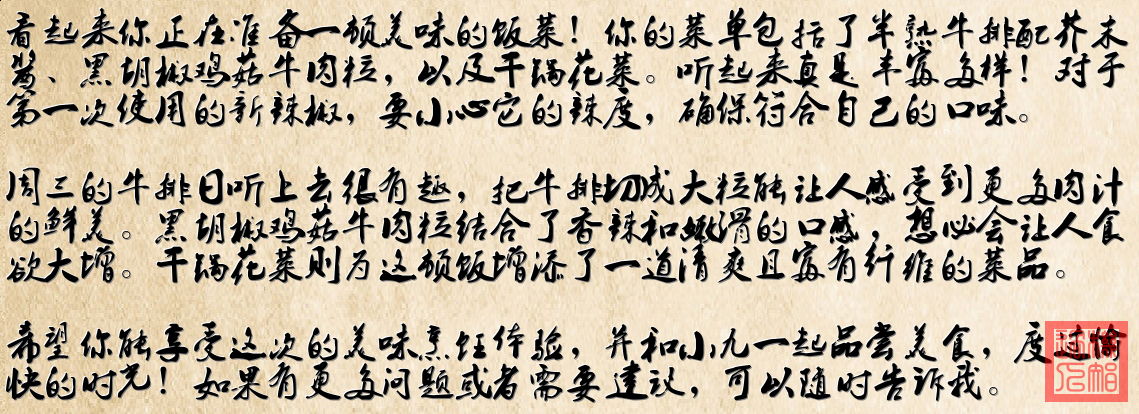 看起来你正在准备一顿美味的饭菜！你的菜单包括了半熟牛排配芥末
酱、黑胡椒鸡菇牛肉粒，以及干锅花菜。听起来真是丰富多样！对于
第一次使用的新辣椒，要小心它的辣度，确保符合自己的口味。
周三的牛排日听上去很有趣，把牛排切成大粒能让人感受到更多肉汁
的鲜美。黑胡椒鸡菇牛肉粒结合了香辣和嫩滑的口感，想必会让人食
欲大增。干锅花菜则为这顿饭增添了一道清爽且富有纤维的菜品。
希望你能享受这次的美味烹饪体验，并和小九一起品尝美食，度过愉
快的时光！如果有更多问题或者需要建议，可以随时告诉我。